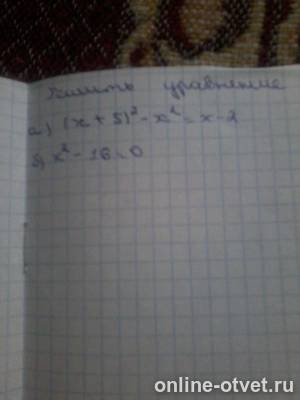 Решить уравнение
а) (x + 5)² - x² = x - 2
б) x² - 16 = 0
online-otvet.ru